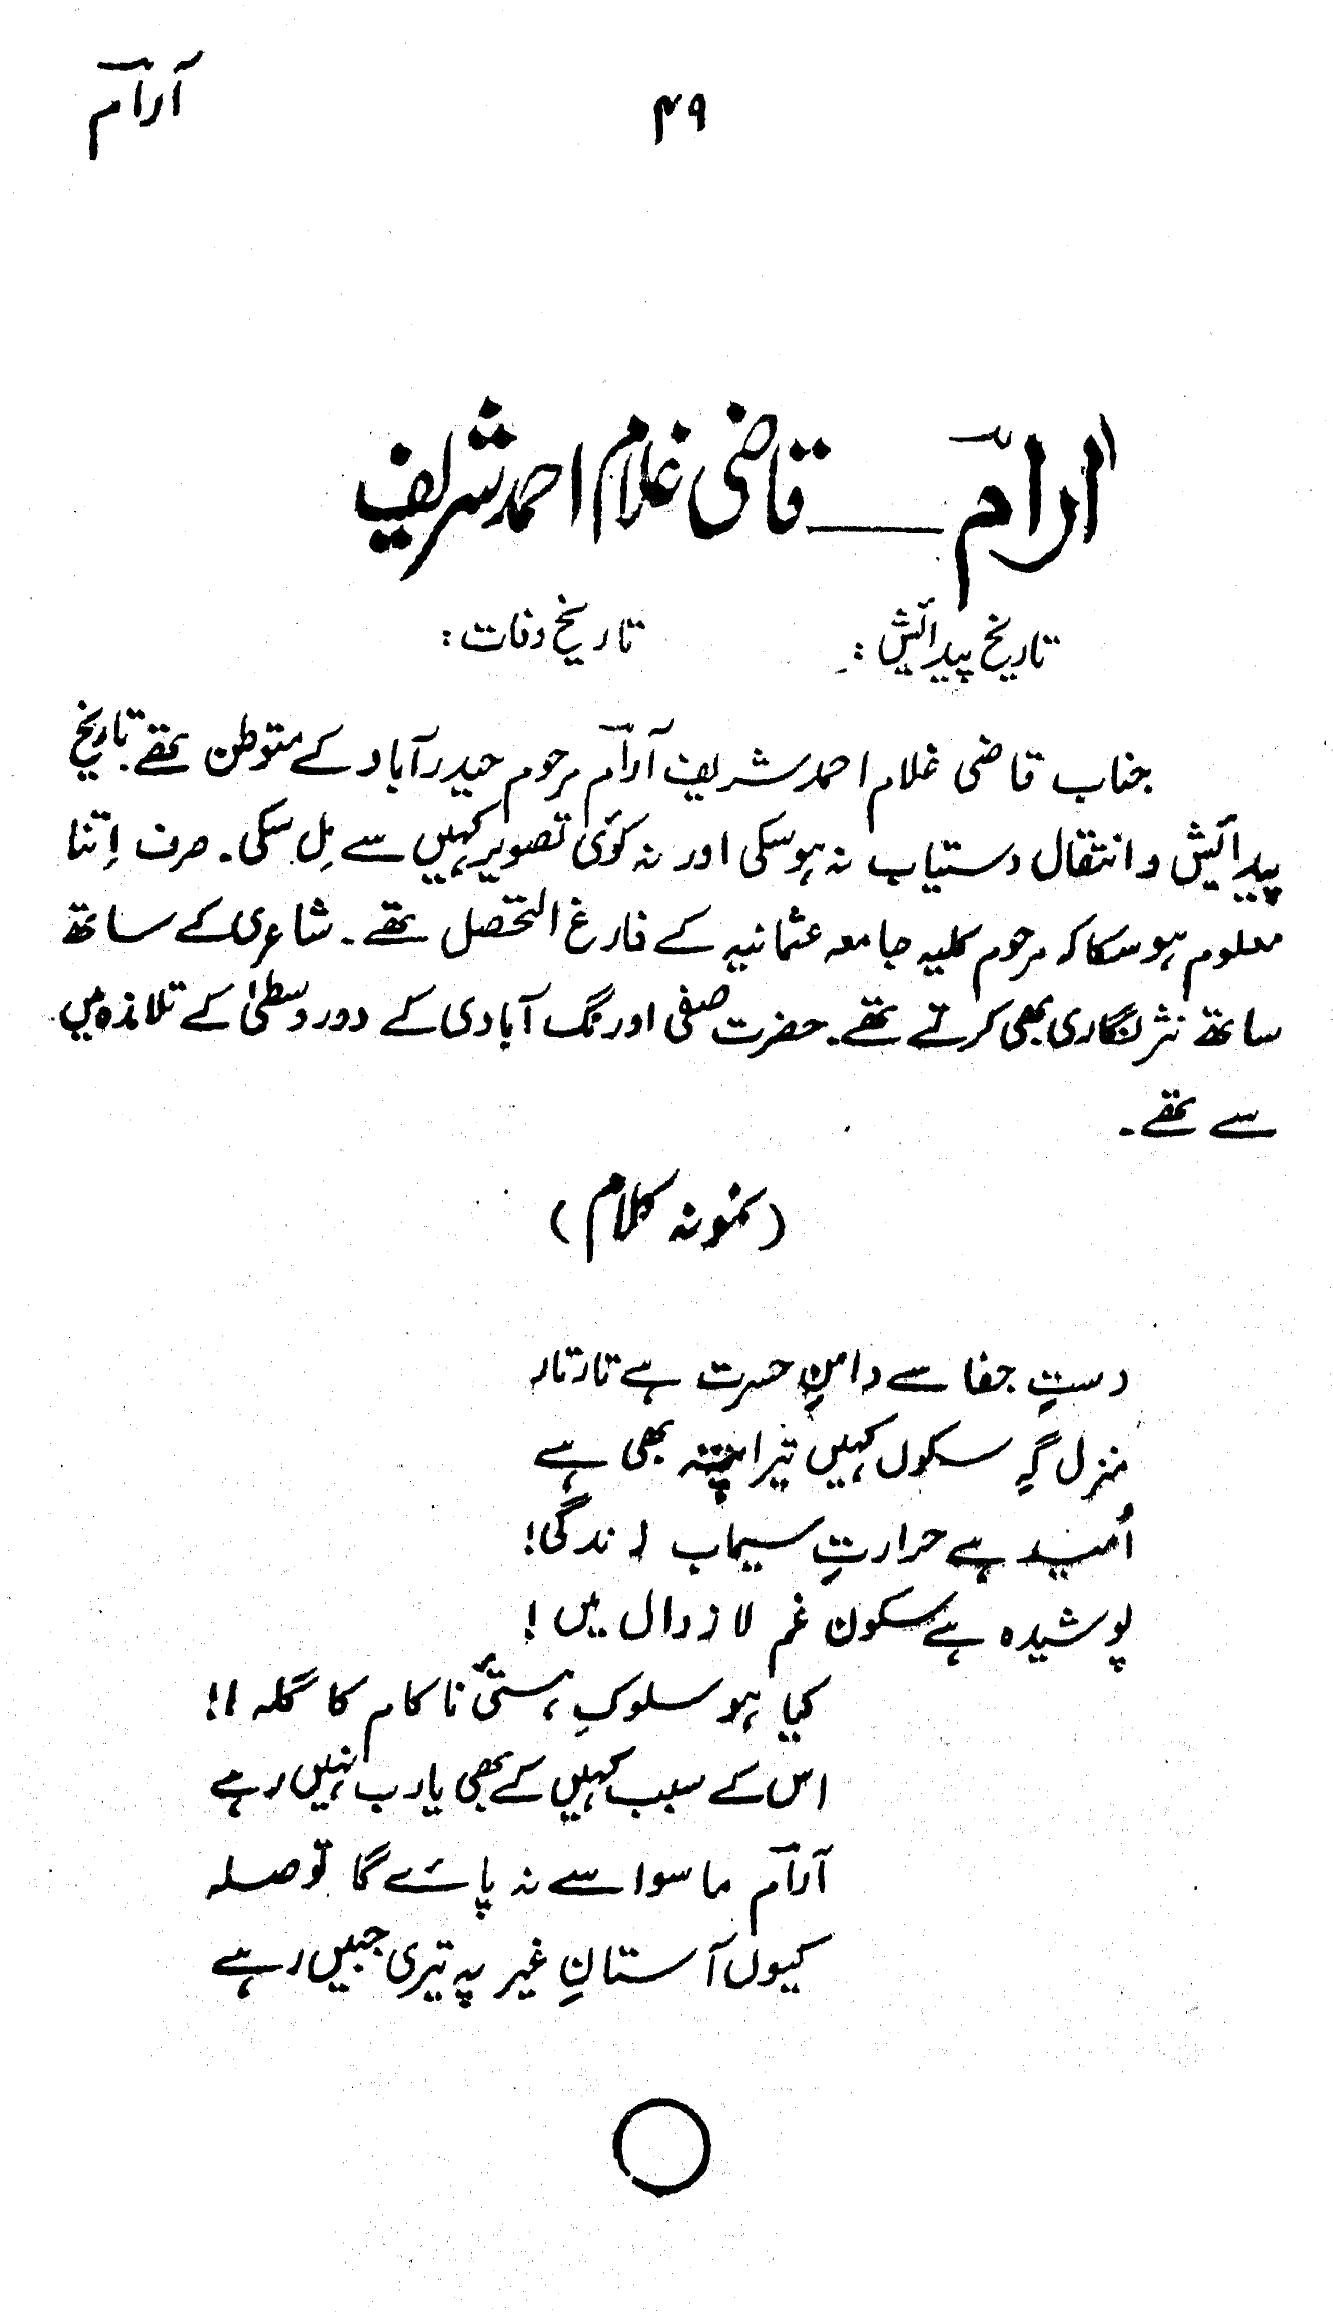 آرام
۴۹
آرام ــــ قاضی غلام احمد شریف
تاریخ پیدائش : تاریخ وفات :
جناب قاضی غلام احمد شریف آرام مرحوم حیدرآباد کے متوطن تھے۔ تاریخ
پیدائش و انتقال دستیاب نہ ہوسکی اور نہ کوئی تصویر کہیں سے مِل سکی۔ صرف اِتنا
معلوم ہوسکا کہ مرحوم کلیہ جامعہ عثمانیہ کے فارغ التحصل تھے۔ شاعری کے ساتھ
ساتھ نثر نگاری بھی کرتے تھے۔ حضرت صفی اورنگ آبادی کے دور وسطیٰ کے تلامذہ میں
سے تھے۔
(نمونہ کلام)
دستِ جفا سے دامنِ حسرت ہے تار تار
منزل گہِ سکوں کہیں تیرا پتہ بھی ہے
اُمید ہے حرارتِ سیماب زندگی!
پوشیدہ ہے سکون غم لازوال میں!
کیا ہو سلوکِ ہستئ ناکام کا گلہ!!
اس کے سبب کہیں کے بھی یارب نہیں رہے
آرام ماسوا سے نہ پائے گا تو صلہ
کیوں آستانِ غیر پہ تیری جبیں رہے